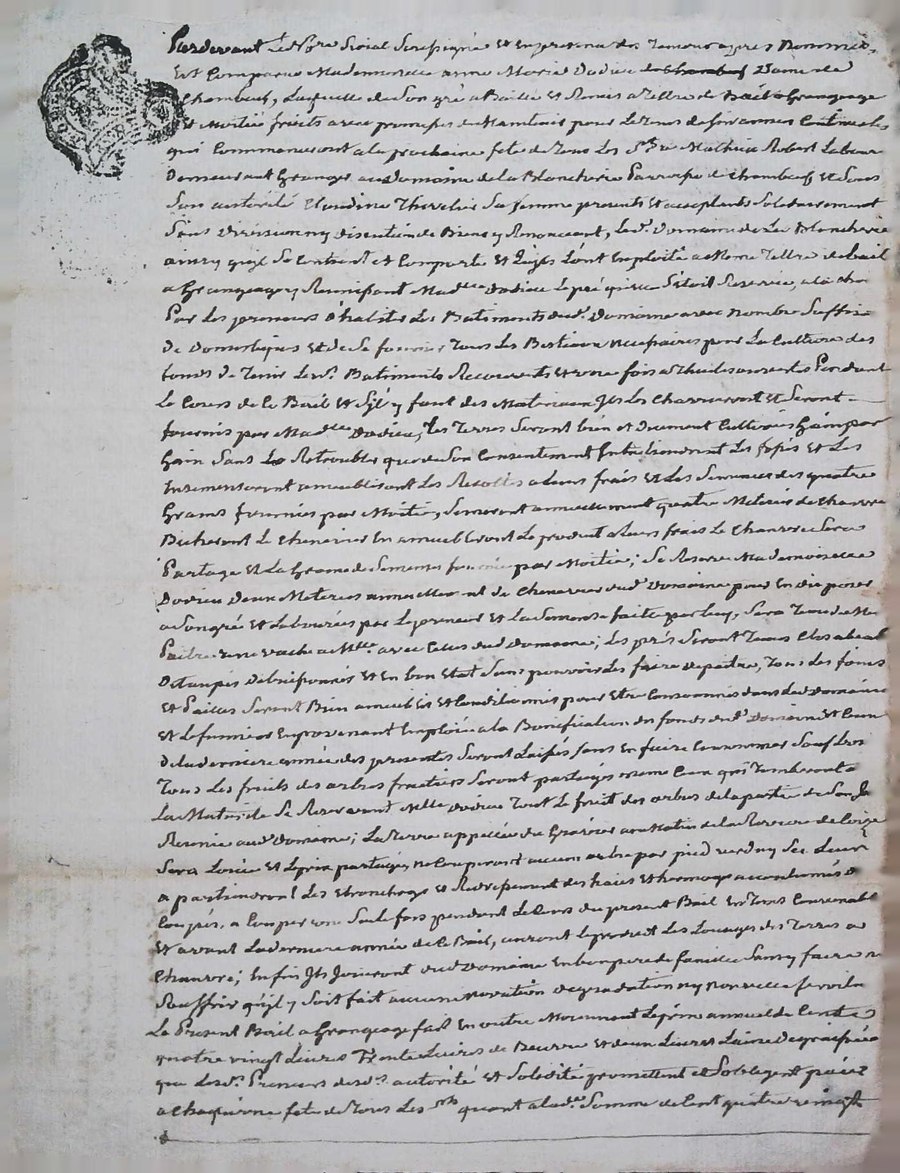 Pardevant Led. No.re Roial Soussigné Et En presence des Temoins apres Nommés,
Est Comparue Mademoiselle anne Marie Dodieu Dame de
Chambeuf, Laquelle de Son gré a Baillé Et Remis a Tiltre de Bail a Grangeage
Et Moitié fruits avec promesse de Maintenir pour Le Tems de Années
qui Commenceront a la prochaine fete de Tous Les S.ts a Mathieu Robert Labour
Demeurant Granger au Domaine de La Blancherie Parroisse de Chambeuf Et Sous
Son autorité Claudine Thevelin Sa femme presents Et acceptants Solidairement
Sans Division ny discution de Biens y Renonceant, Led. Domaine de La Blancherie
ainsy qu'il Se Contient et Comporte Et qu'ils L'ont Exploité a Meme Tiltre de bail
a Grangeage y Reunissant Mad.lle Dodieu Le pré qu'elle S'étoit Reservé, a la
Par Les preneurs d'habiter Les Batiments dud. Domaine avec Nombre Suffis
De Domestiques Et de Se fournir Tous Les Bestiaux Necessaires pour La Culture des
fonds De Tenir Lesd. Batiments Recouverts Pendant
Le Cours de Ce Bail Et S'jl y faut des Materiaux Jls Les Charrieront Et Seront
fournis par Mad.lle Dodieu, Les Terres Seront bien et Duement Cultivées
Sans Le Retrouble que de Son Consentement Entretiendront Les fossés Et Les
Ensemenseront ameubliront Les Recoltes a Leurs frais Et Les Semences des quatre
Grains fournies par Moitié, Semeront annuellement quatre Meterées de Chanvre
Becheront Le Chenevier En ameubliront Le produit a Leurs frais Le Chanvre Sera
Partagé Et La Graine de Semence fournie par Moitié; Se Reserve Mademoiselle
Dodieu Deux Meterées annuellement de Chenevier dud. Domaine pour En disposer
a Son gré Et Labourées par Le preneur Et La Semence faite par Luy, Sera Tenu de
Paitre une vache a M.lle avec Celles dud Domaine; Les prés Seront Tenus Clos
Détaupés Debuissonnés Et En bon Etat Sans pouvoir Les faire depaitre, Tous Les foins
Et Pailles Seront Bien ameublés Et Conditionnés pour Etre Consommés dans Led Domaine
Et Le fumier En provenant Emploié a La Bonification des fonds dud. Domaine Et Ceux
De La derniere année des presentes Seront Laissés Sans En faire Consommer Sauf
Tous Les fruits des arbres fruitiers Seront partagés meme Ceux qui Tomberont a
La Matinée Se Reservant M.elle Dodieu Tout Le fruit des arbres de La partie de Son
Reunie aud. Domaine; La Terre appellée du Gravier au Matin de La Riviere de
Sera Loüée Et Le prix partagé, ne Couperont aucun arbre par pied verd ny Sec Leur
apartiendront Les Etronchage Et des haies Et accoutumés
Coupés, a Couper une Seule fois pendant Le Cours du present Bail En Tems Convenable
Et avant La derniere année de Ce Bail, auront Le produit Les Louages des Terres a
Chanvre; Enfin Jls Joüiront dud Domaine En bon pere de famille Sans y faire n
Souffrir qu'jl y Soit fait aucune novation degradation ny nouvelle
Le Present Bail a Grangeage fait En outre Moiennant Le prix annuel de Cent
quatre vingt Livres Trente Livres de Beurre Et deux Livres Laine
que Lesd. Preneurs desd. autorité Et Solidité promettent Et S'obligent païer
a Chaque fete de Tous Les S.ts quant a lad. Somme de Cent quatre vingts